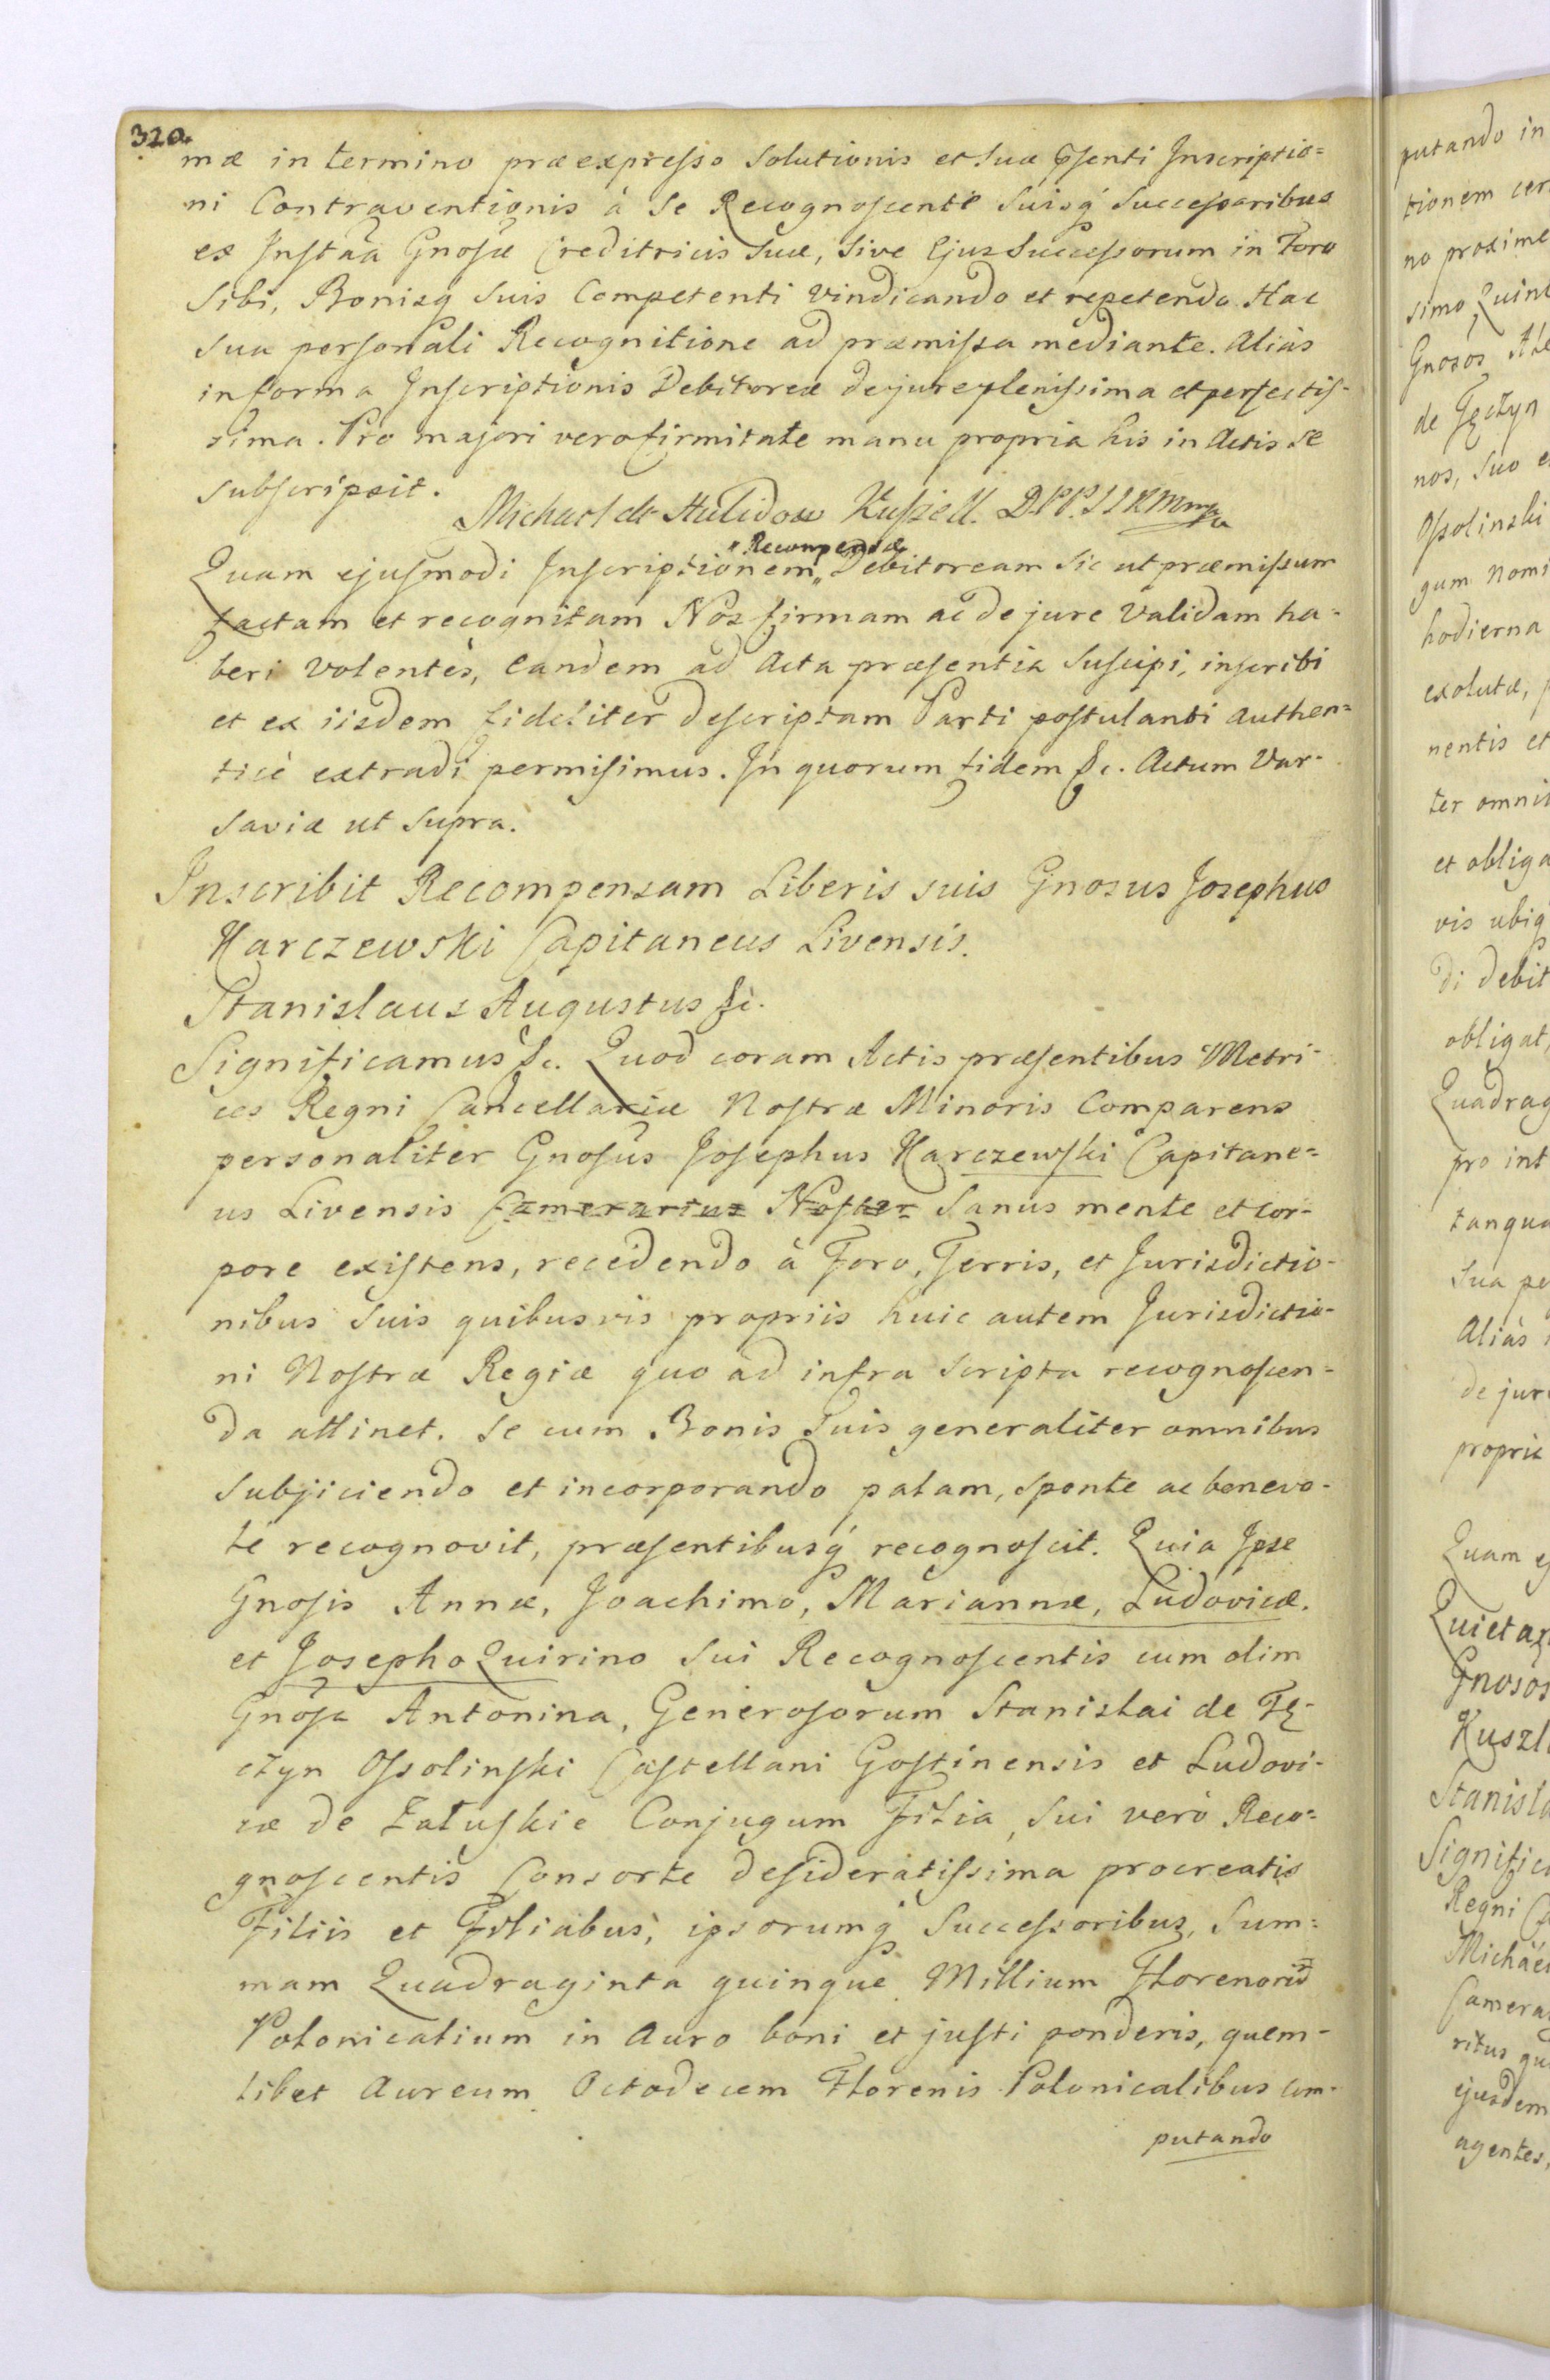 320.
mæ in termino præexpresso Solutionis et suæ p̃senti Inscriptio=
ni Contraventionis à Se Recognoscente Suisq́ Successoribus
ex Instãa Gnosæ Creditricis Suæ, Sive Ejus Successorum in Foro
Sibi, Bonisq́ Suis Competenti Vindicando et repetendo Hac
Sua personali Recognitione ad præmissa mediante. Aliàs
in forma Inscriptionis Debitoreæ de jure plenissima et perfectis-
sima. Pro majori vero firmitate manu propria his in Actis se
subscripsit.
Michael de
Recompensæ
Quam ejusmodi Inscriptionem„ Debitoream Sic ut præmissum
factam et recognitam Nos firmam ac de jure Validam ha-
beri Volentes, Eandem ad Acta præsentia Suscipi, inscribi
et ex iisdem fideliter descriptam Parti postulanti Authen=
ticè extradi permisimus. In quorum fidem &c. Actum Var-
saviæ ut Supra.
Inscribit Recompensam Liberis suis Gnosus Josephus
Karczewski Capitaneus Livensis.
Stanislaus Augustus &c.
Significamus &c. Quod coram Actis præsentibus Metri-
ces Regni Cancellariæ Nostræ Minoris Comparens
personaliter Gnosus Josephus Karczewski Capitane=
us Livensis Camerarius Noster Sanus mente et cor-
pore existens, recedendo à Foro, Terris, et Jurisdictio-
nibus Suis quibusvis propriis huic autem Jurisdictio-
ni Nostræ Regiæ quo ad infra Scripta recognoscen-
da attinet. Se cum Bonis Suis generaliter omnibus
Subjiciendo et incorporando palam, Sponte ac benevo-
le recognovit, præsentibusq́ recognoscit. Quia Ipse
Gnosis Annæ, Joachimo, Mariannæ, Ludovicæ.
et Josepho Quirino Sui Recognoscentis cum olim
Gnosa Antonina, Generosorum Stanislai de Tę-
czyn Ossolinski Castellani Gostinensis et Ludovi-
cæ de Załuskie Conjugum Filia, Sui verò Reco=
gnoscentis Consorte desideratissima procreatis
Filiis et Filiabus, ipsorumq́ Successoribus, Sum=
mam Quadraginta quinque Millium Florenorũ
Polonicalium in Auro boni et justi ponderis, quem-
libet Aureum Octodecem Florenis Polonicalibus com-
putando
putando in
tionem cer
no proxime
simo Quint
Gnosos
de Tęczyn
nos, Suo e
Ossolinski
gum Nomi
hodierna
exolutæ,
nentis et
ter omni
et obliga
vis ubiq́
di debit
obligat,
Quadrag
pro int
tanqua
Sua pe
Aliàs
de jure
propria
Quam ej
Quietat
Gnosos
Kuszl
Stanisla
Significa
Regni Ca
Michael
Camera
ritus qu
ejusdem
agentes,